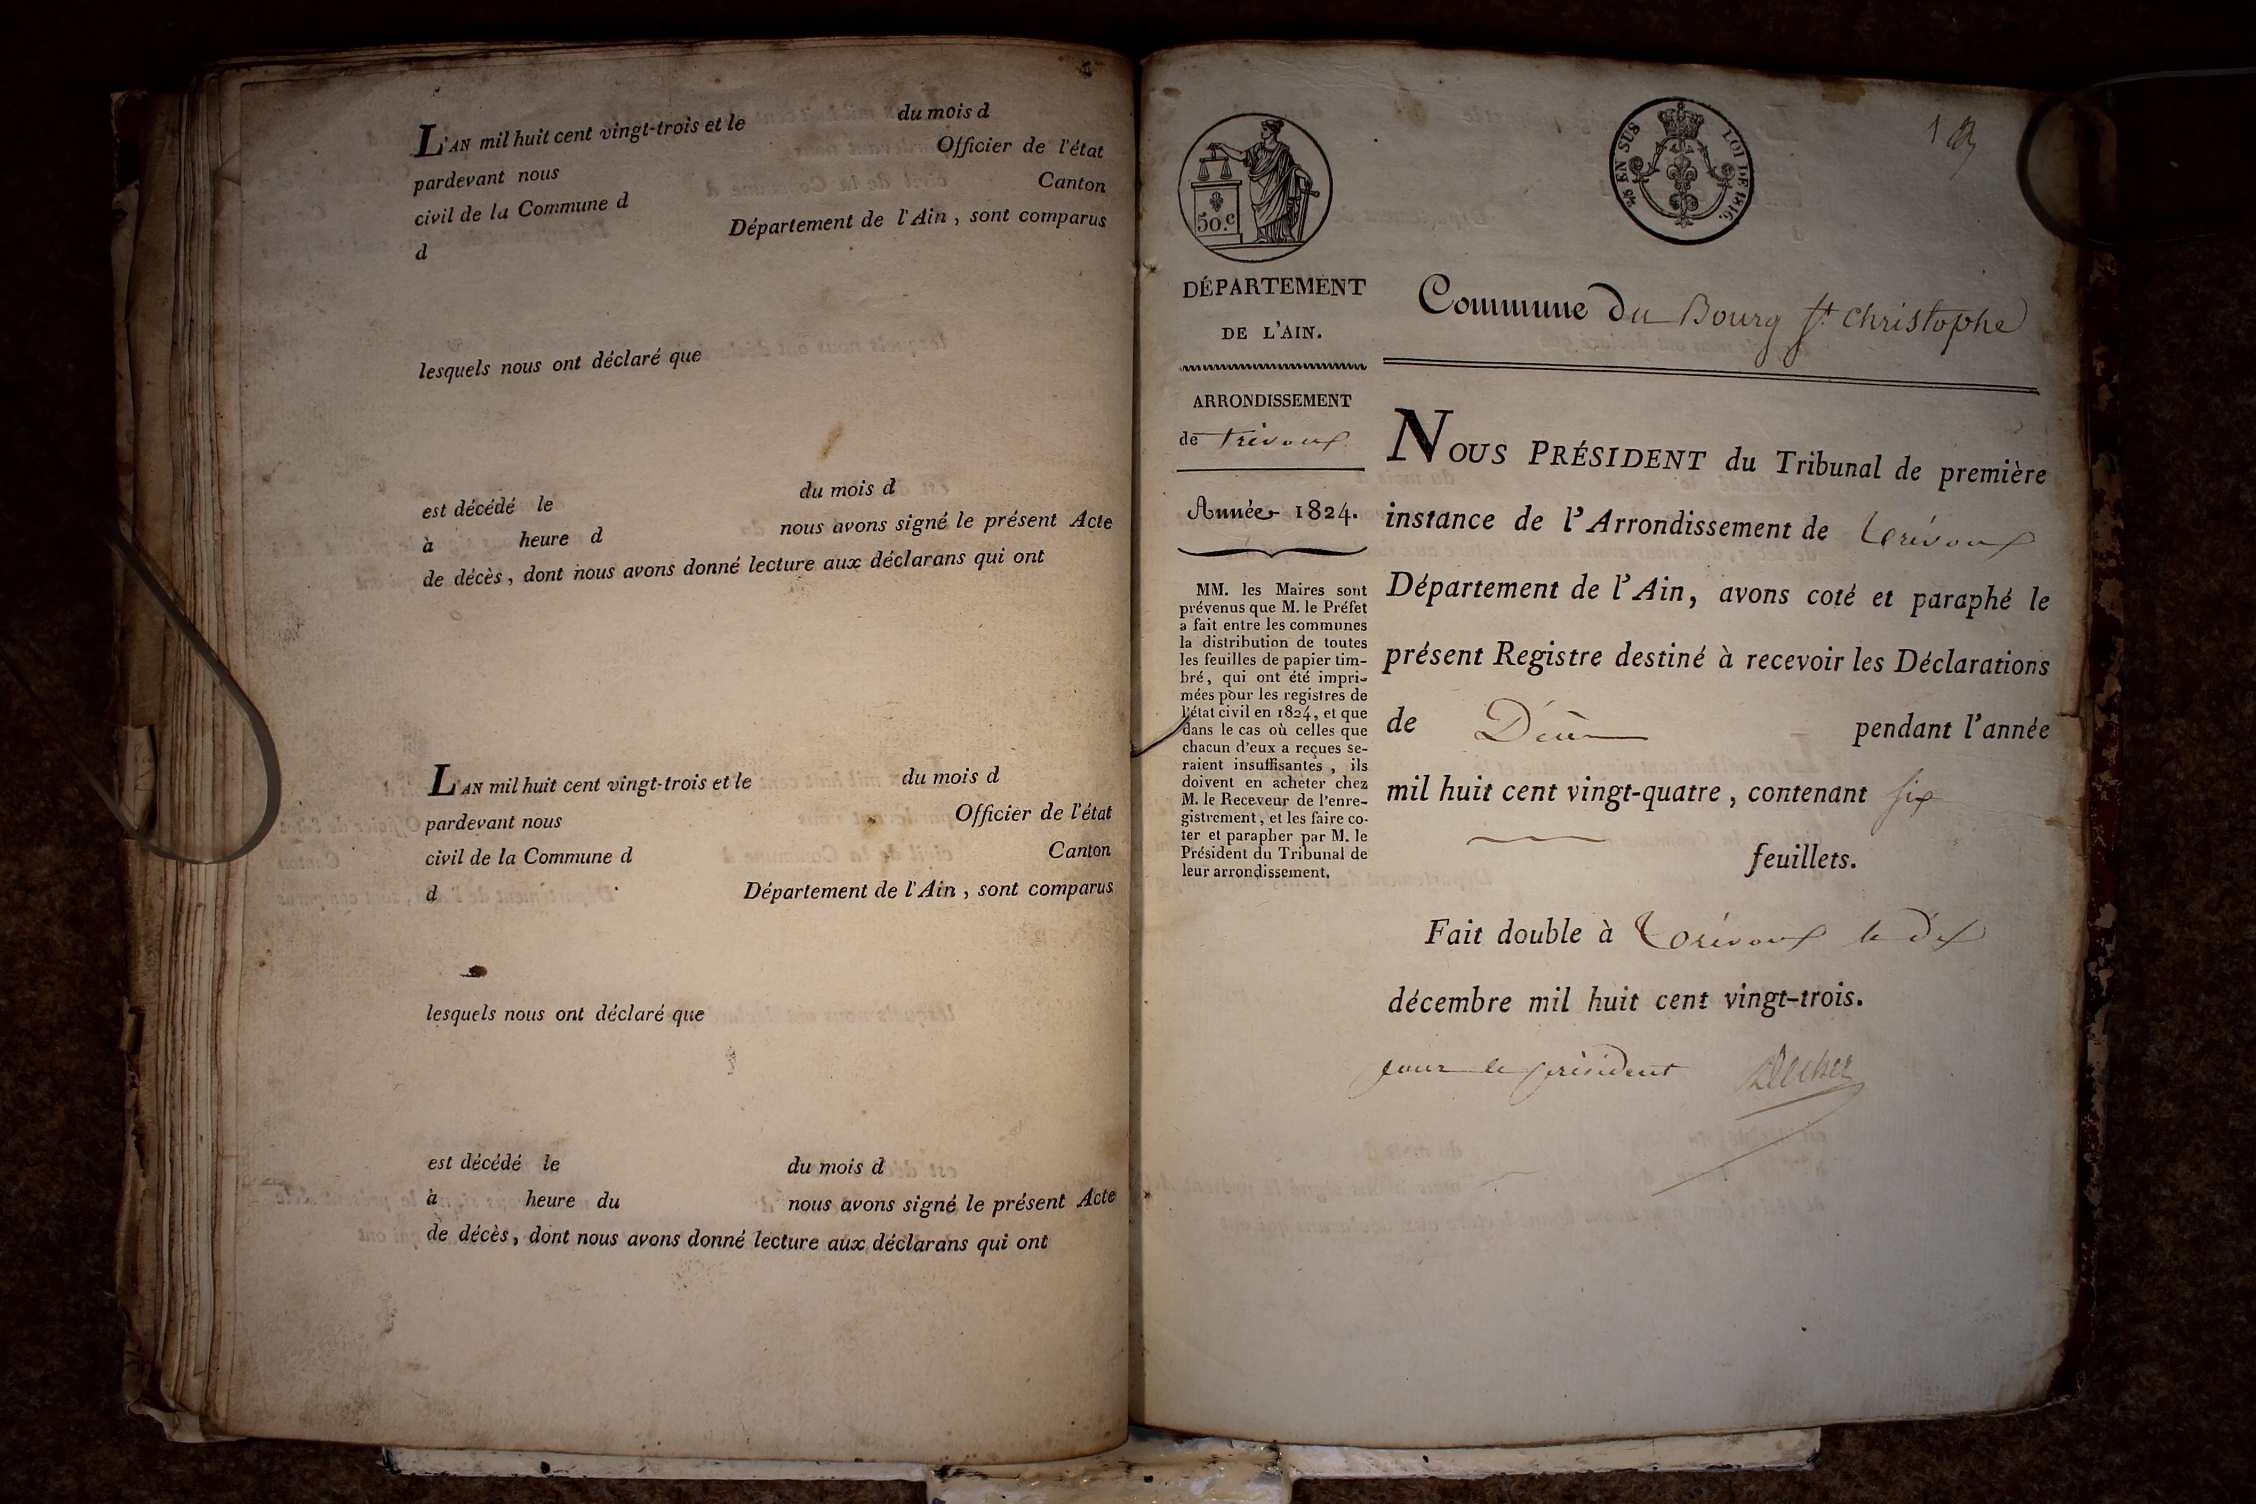 L'AN mil huit cent vingt-trois et le du mois d
pardevant nous Officier de l'état
civil de la Commune d Canton
d Département de l'Ain, sont comparus
lesquels nous ont déclaré que
est décédé le du mois d
à heure d nous avons signé le présent Acte
de décès, dont nous avons donné lecture aux déclarans qui ont
L'AN mil huit cent vingt-trois et le du mois d
pardevant nous Officier de l'état
civil de la Commune d Canton
d Département de l'Ain, sont comparus
lesquels nous ont déclaré que
est décédé le du mois d
à heure du nous avons signé le présent Acte
de décès, dont nous avons donné lecture aux déclarans qui ont
50.c
EN SUS LOI DE 1816.
1
DÉPARTEMENT
DE L'AIN.
ARRONDISSEMENT
de Trévoux
Année 1824.
MM. les Maires sont
prévenus que M. le Préfet
a fait entre les communes
la distribution de toutes
les feuilles de papier tim-
bré, qui ont été impri-
mées pour les registres de
l'état civil en 1824, et que
dans le cas où celles que
chacun d'eux a reçues se-
raient insuffisantes, ils
doivent en acheter chez
M. le Receveur de l'enre-
gistrement, et les faire co-
ter et parapher par M. le
Président du Tribunal de
leur arrondissement.
Commune du Bourg St Christophe
NOUS PRÉSIDENT du Tribunal de première
instance de l'Arrondissement de Trévoux
Département de l'Ain, avons coté et paraphé le
présent Registre destiné à recevoir les Déclarations
de Décès pendant l'année
mil huit cent vingt-quatre, contenant six
feuillets.
Fait double à Trévoux le dix
décembre mil huit cent vingt-trois.
pour le président